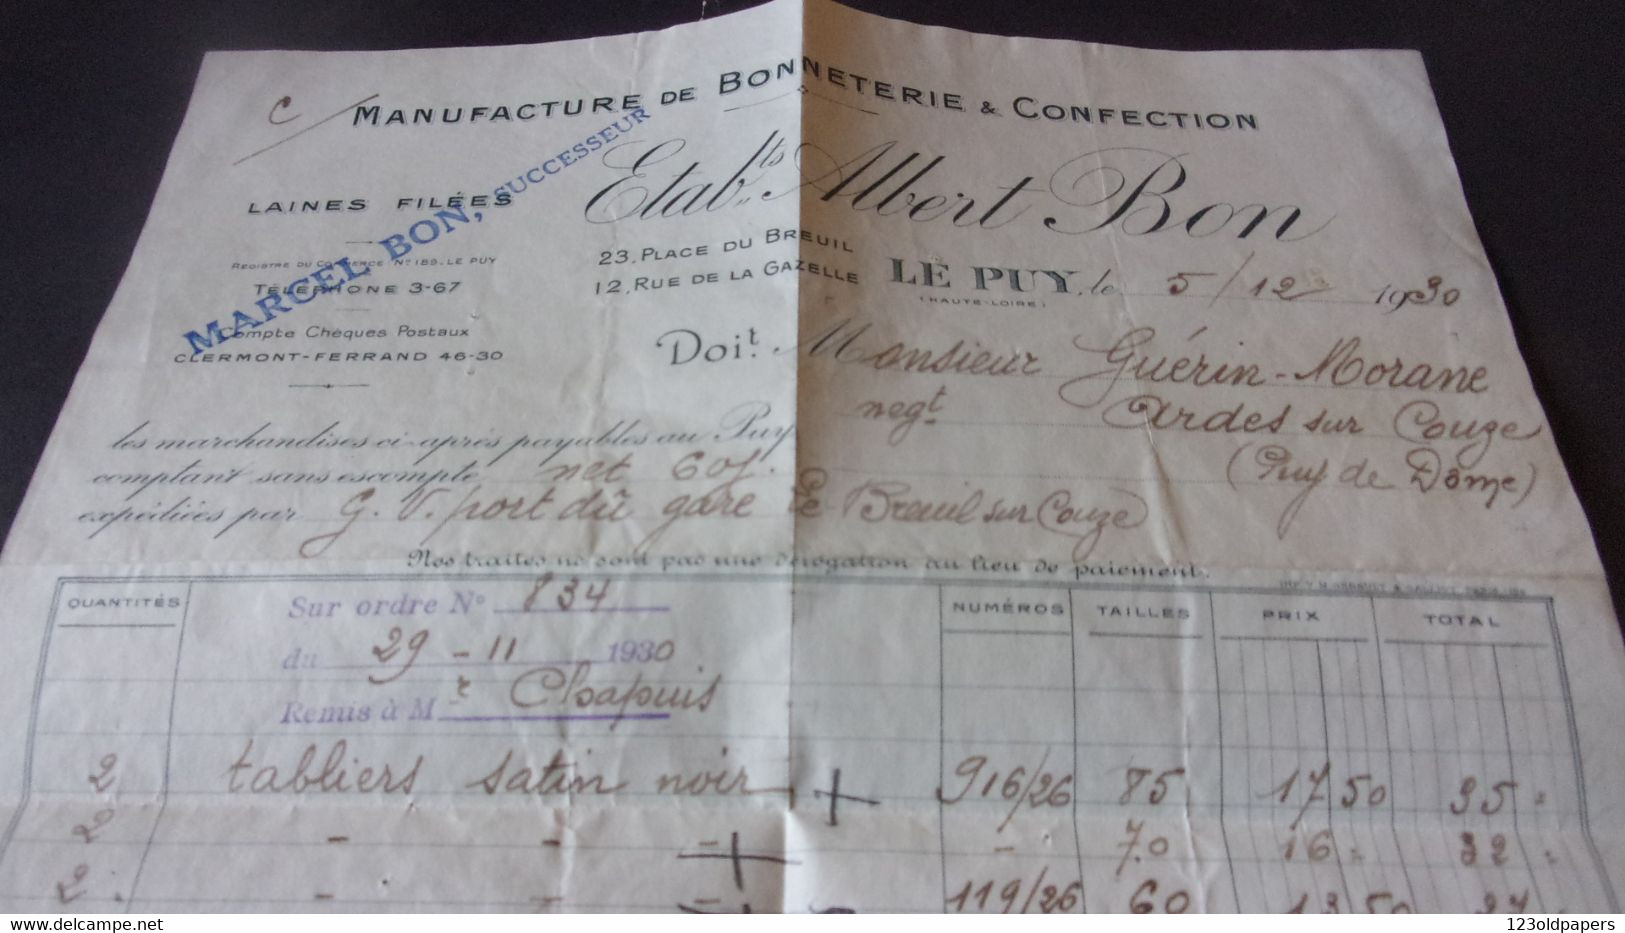 C
MANUFACTURE DE BONNETERIE & CONFECTION
Etab.ts Albert Bon
LAINES FILÉES
MARCEL BON, SUCCESSEUR
REGISTRE DU COMMERCE N° 189. LE PUY
TÉLÉPHONE 3-67
Compte Chèques Postaux
CLERMONT-FERRAND 46-30
23, PLACE DU BREUIL
12, RUE DE LA GAZELLE
LE PUY, le 5/12 1930
(HAUTE-LOIRE)
Doit Monsieur Guérin-Morane
negt Ardes sur Couze
(Puy de Dôme)
les marchandises ci-après payables au Puy
comptant sans escompte net 60j.
expédiées par G. V. port dû gare Le Breuil sur Couze
Nos traites ne sont pas une dérogation au lieu de paiement.
QUANTITÉS NUMÉROS TAILLES PRIX TOTAL
Sur ordre N° 834
du 29-11 1930
Remis à Mr Chapuis
2 tabliers satin noir 916/26 85 17 50 35 "
2 - - - - 70 16 " 32 "
2 - - - 119/26 60 13 50 27 "
www.delcampe.net
123oldpapers